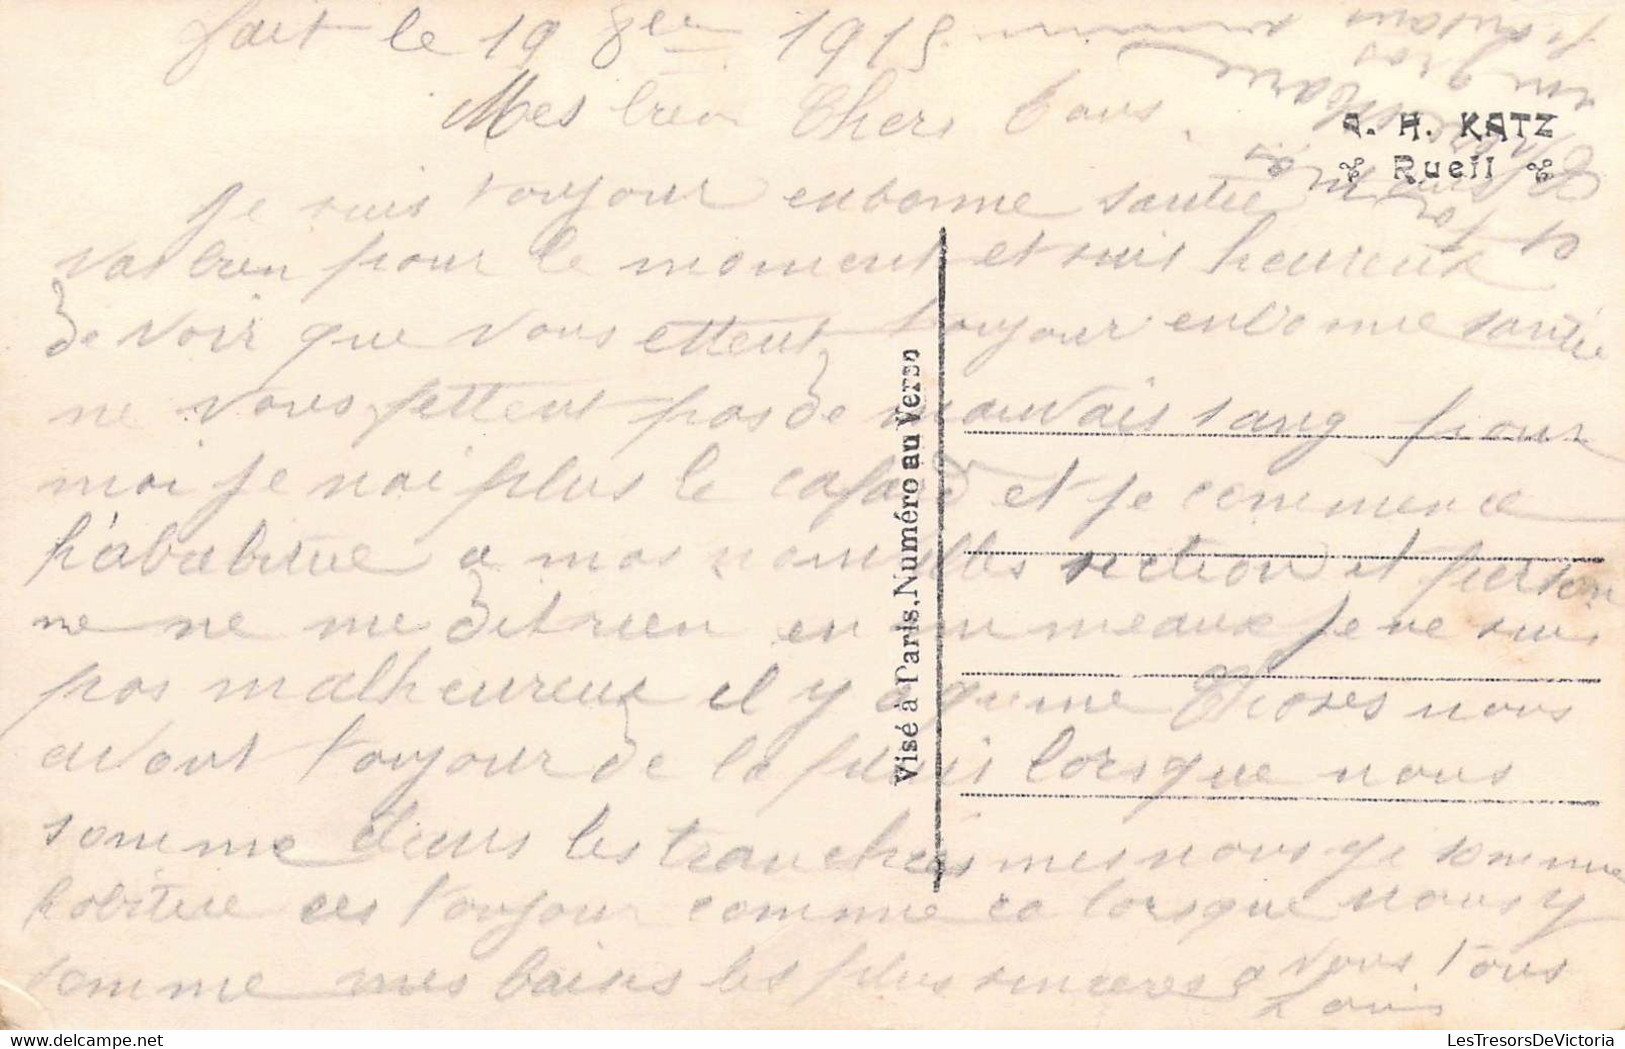 fait le 19 8bre 1915
Mes bien Chers tous
Je suis toujour enbonne santée
va bien pour le moment et suis heureux
de voir que vous ettent toujour enbonne santée
ne vous fettent pas de mauvais sang pour
moi je nai plus le cafard et je commence
h'ababitue a mas nouvelles section et person
ne ne me dit rien en un meaux je ne suis
pas malheureux il y a qu'une Choses nous
avont toujour de la pluis lorsque nous
somme dans les tranchées mes nous ji somme
habitue ces toujour comme ca lorsque nous y
somme mes baisés les plus sinceres a vous tous
Louis
A. H. KATZ
Rueil
Visé à Paris, Numéro au Verso
LesTresorsDeVictoria